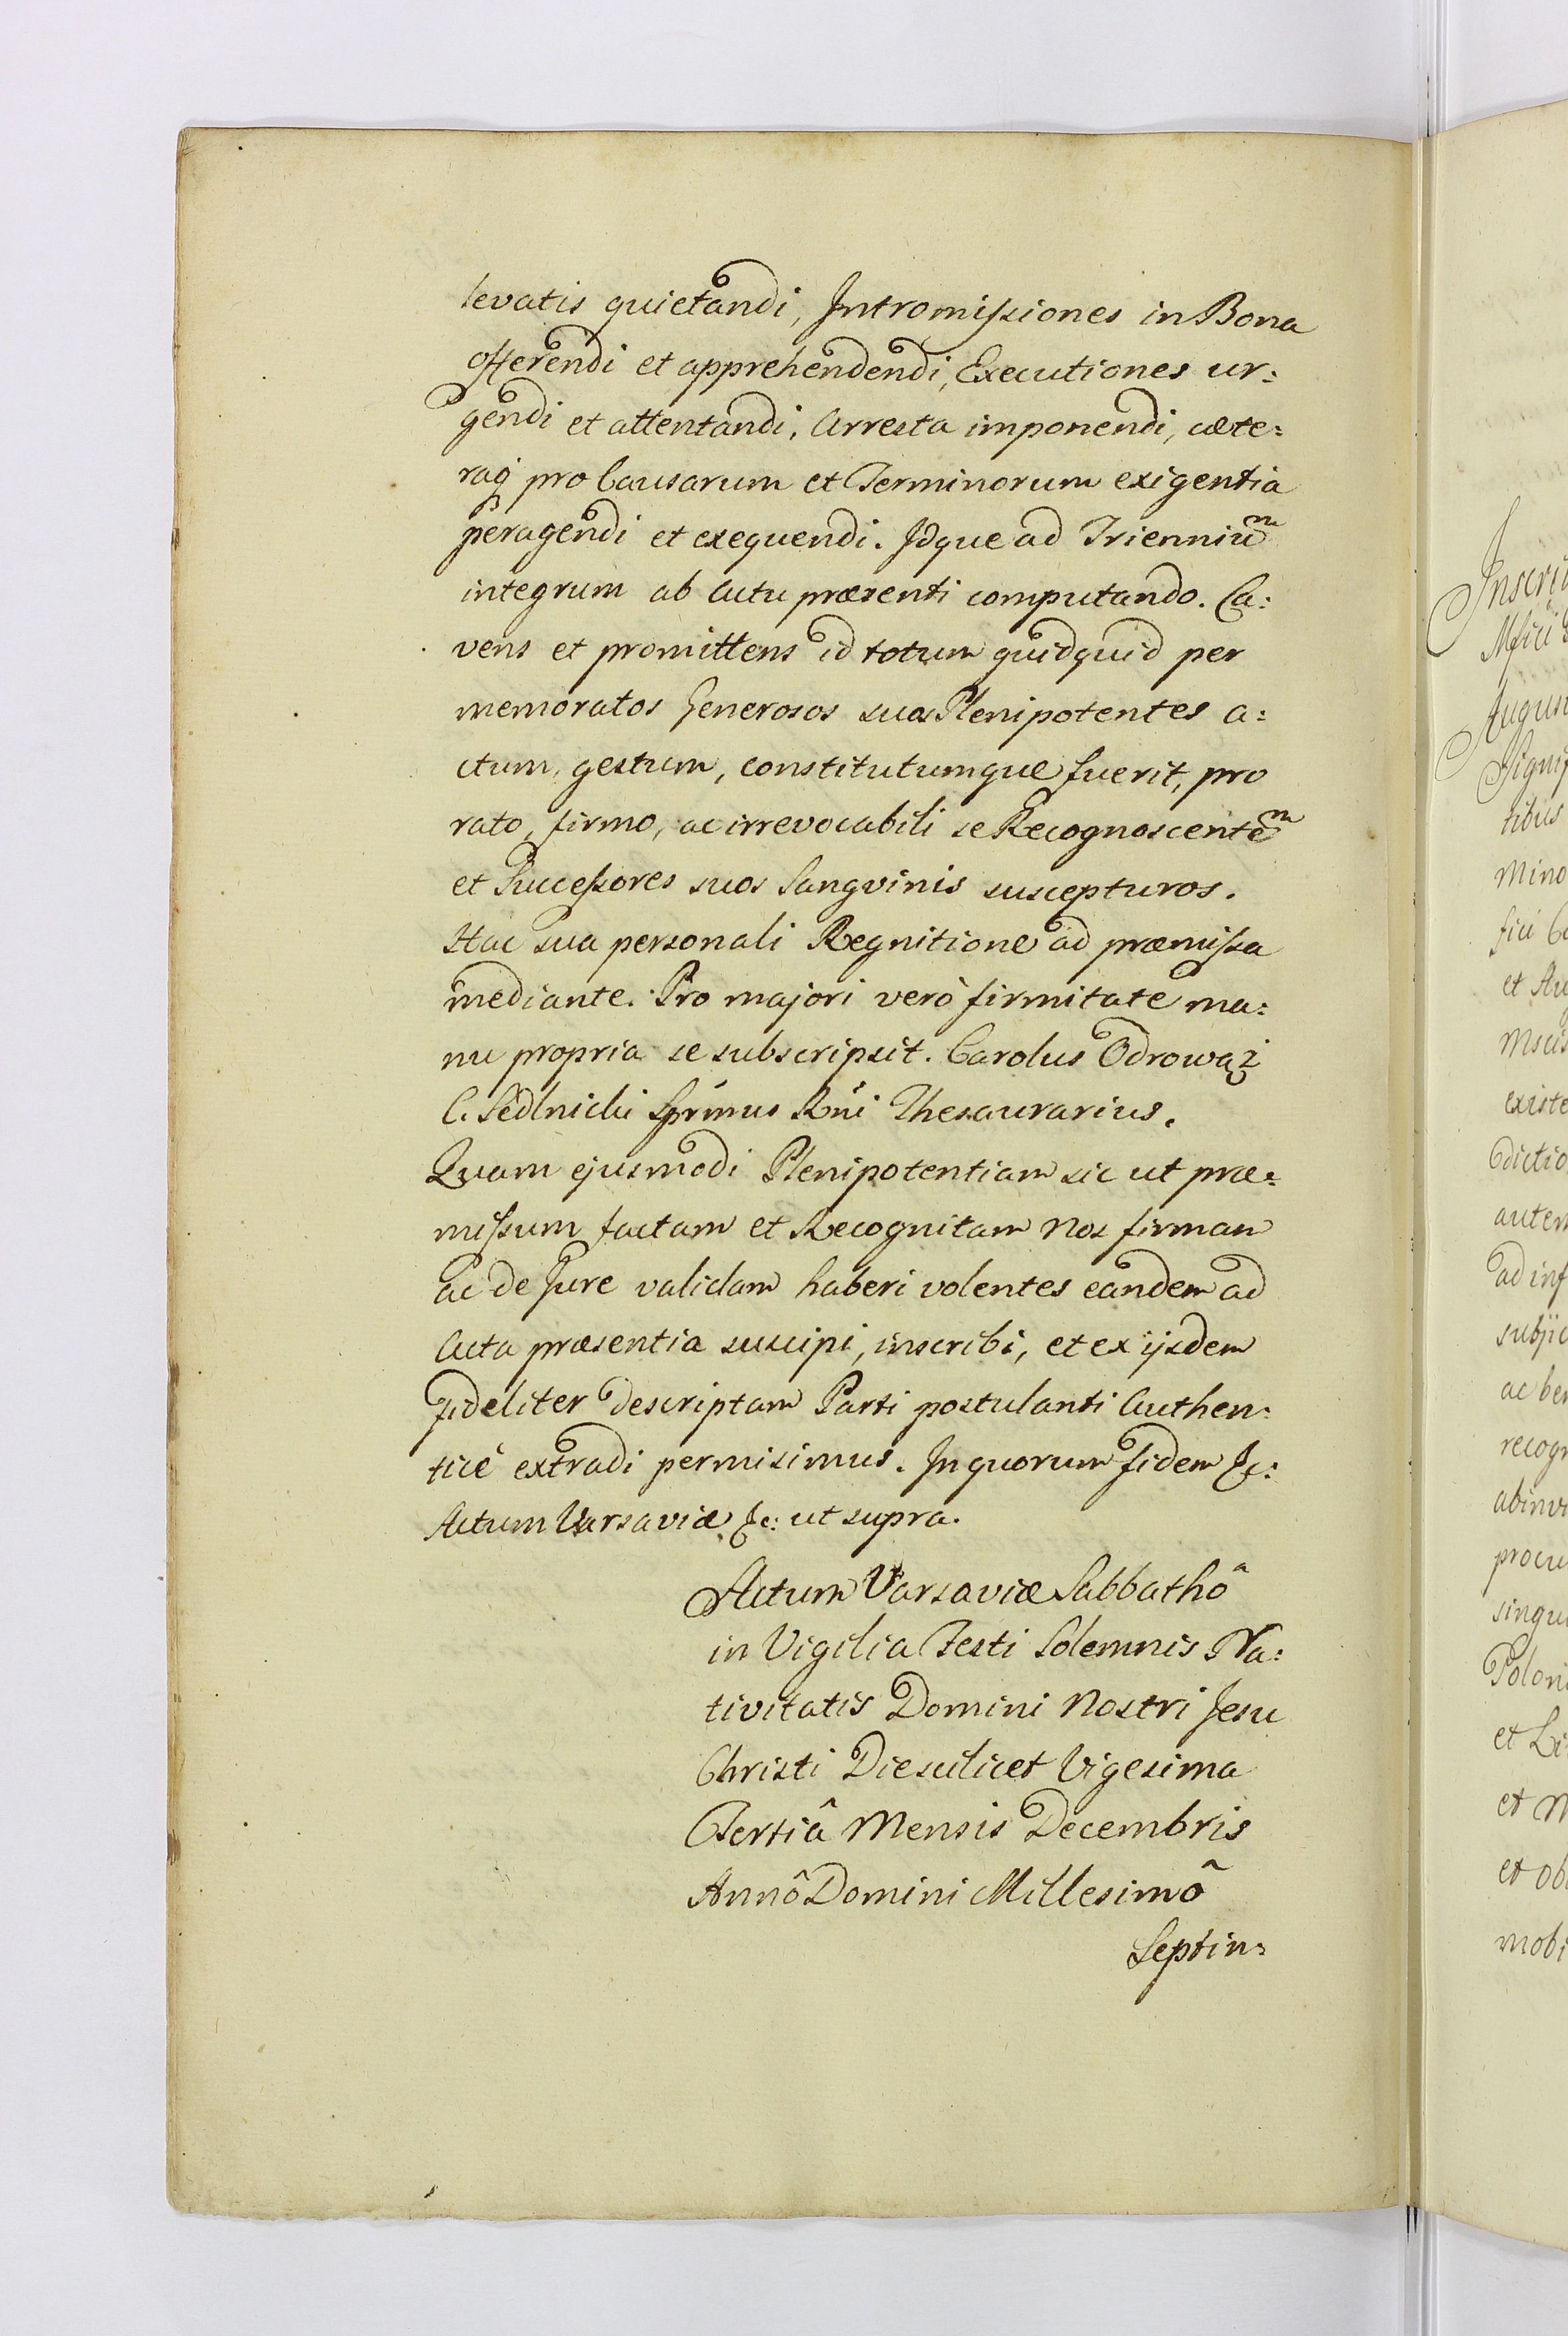 levatis quietandi, Intromissiones in Bona
offerendi et apprehendendi, Executiones ur:
gendi et attentandi, Arresta imponendi, cæte:
raq pro Causarum et Terminorum exigentia
peragendi et exequendi. Idque ad Trienniu᷉m
integrum ab Actu præsenti computando. Ca:
vens et promittens id totum quidquid per
memoratos Generosos suos Plenipotentes a:
ctum, gestum, constitutumque fuerit, pro
rato, firmo, ac irrevocabili se Recognoscentem
et Successores suos Sangvinis suscepturos.
Hac sua personali Regnitione ad præmissa
mediante. Pro majori verò firmitate ma:
nu propria se subscripsit. Carolus Odrowąż
C. Sedlnicki Sprimus Rńi Thesaurarius.
Quam ejusmodi Plenipotentiam sic ut præ:
missum factam et Recognitam Nos firmam
ac de Jure validam haberi volentes eandem ad
Acta præsentia suscipi, inscribi, et ex ijsdem
fideliter descriptam Parti postulanti Authen:
ticè extradi permisimus. In quorum fidem &c:
Actum Varsaviæ &c: ut supra.
Actum Varsaviæ Sabbathô
in Vigilia Festi Solemnis Na:
tivitatis Domini Nostri Jesu
Christi Die scilicet Vigesima
Tertiâ Mensis Decembris
Annô Domini Millesimô
Septin:
Inscri
Mfici
tibus
Mino
fici
et Au
existe
dictio
autem
ad inf
subjic
ac ben
recogn
procu
singu
Poloni
et Li
et M
et ob
mobi